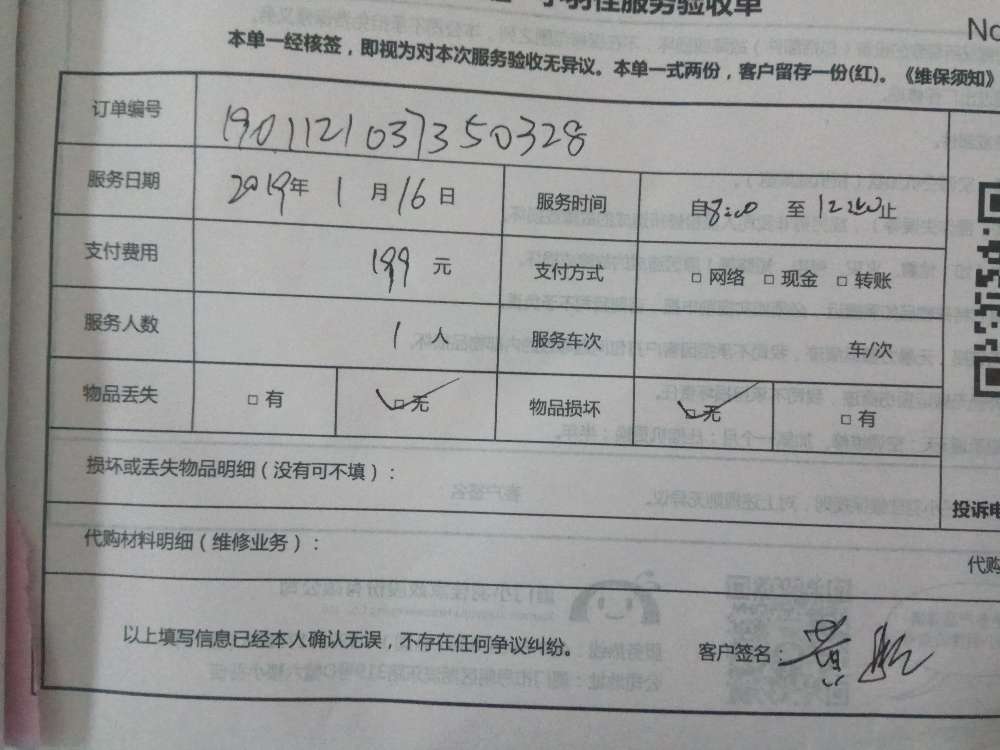 小羽佳服务验收单
No
本单一经核签，即视为对本次服务验收无异议。本单一式两份，客户留存一份(红)。《维保须知》
订单编号 1901121037350328
服务日期 2019年 1 月 16 日 服务时间 自8:00 至 12:00止
支付费用 199 元 支付方式 □ 网络 □ 现金 □ 转账
服务人数 1 人 服务车次 车/次
物品丢失 □ 有 □ 无 物品损坏 □ 无 □ 有
损坏或丢失物品明细（没有可不填）：
投诉电
代购材料明细（维修业务）：
代购
以上填写信息已经本人确认无误，不存在任何争议纠纷。 客户签名：黄